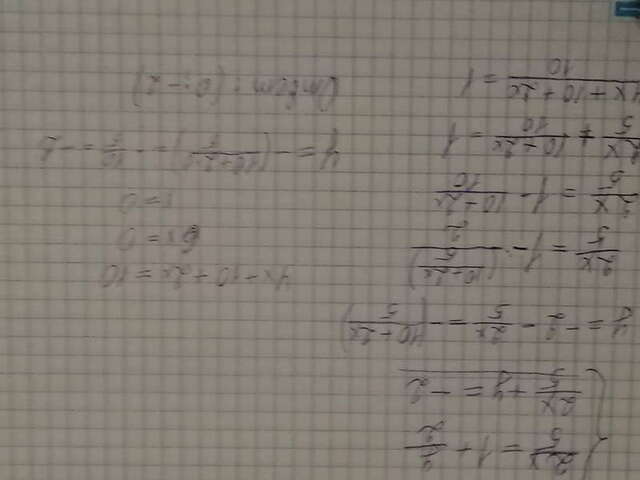 2x/5 = 1 + y/2
2x/5 + y = -2
y = -2 - 2x/5 = -(10 + 2x / 5)
2x/5 = 1 - (10 + 2x / 5) / 2
2x/5 = 1 - (10 + 2x)/10
2x/5 + (10 + 2x)/10 = 1
(4x + 10 + 2x)/10 = 1
4x + 10 + 2x = 10
6x = 0
x = 0
y = -(10 + 2x / 5) = -10/5 = -2
Ответ: (0; -2)